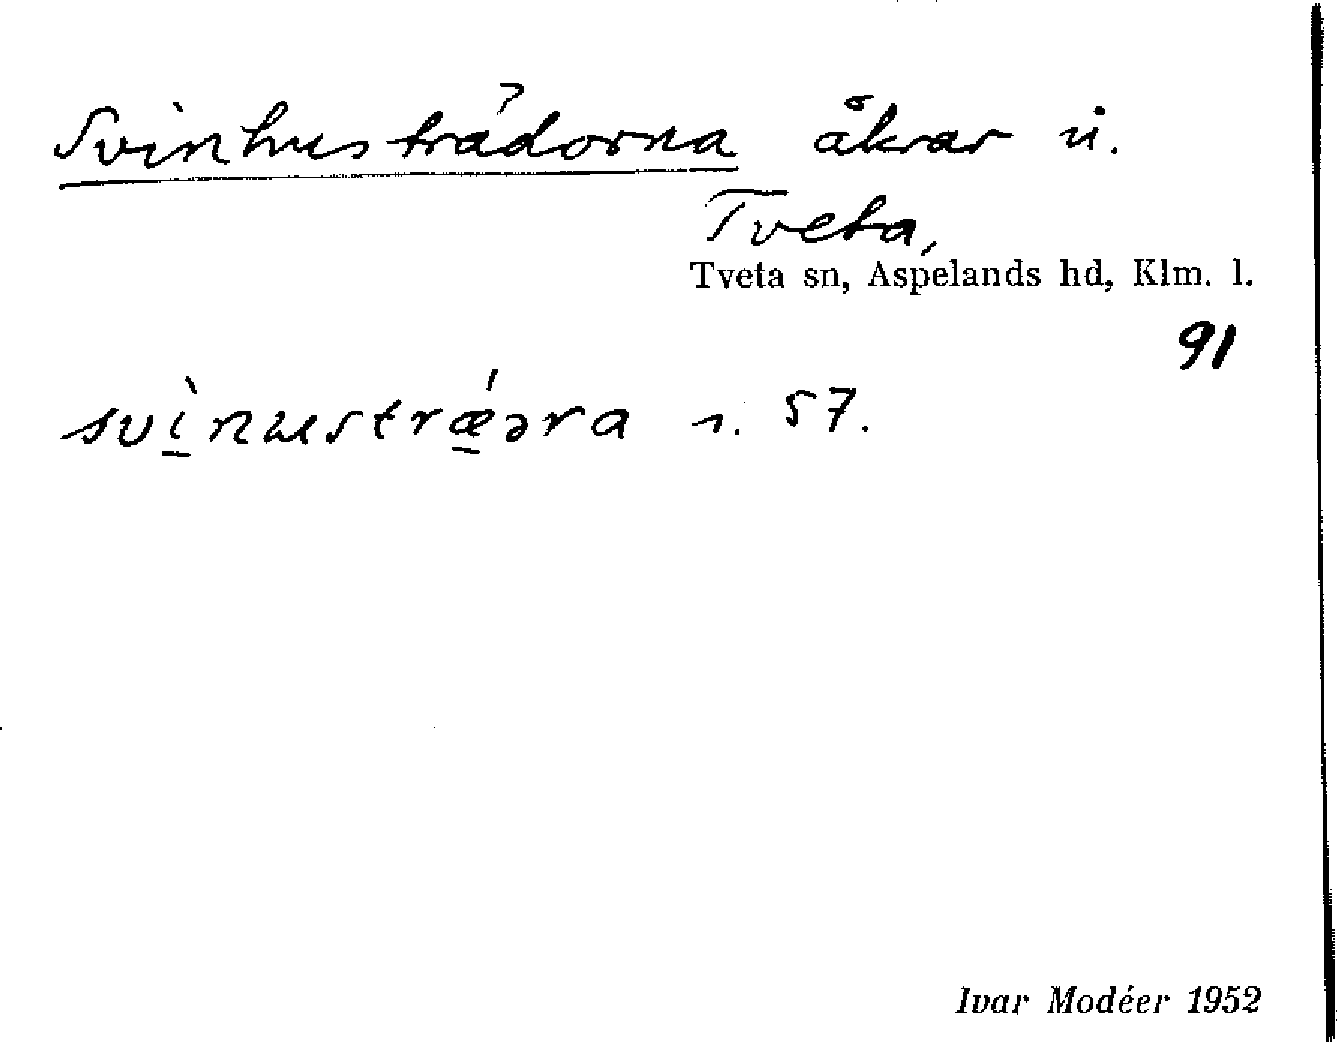 Svinhusträdorna åkrar u.
Tveta,
Tveta sn, Aspelands hd, Klm. l.
91
svìnustrǽəra s. 57.
Ivar Modéer 1952